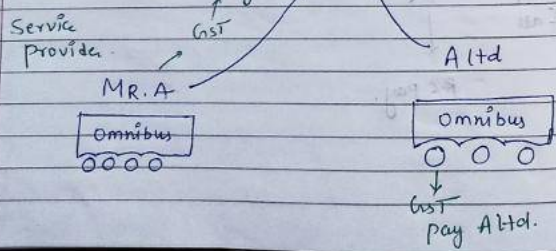 Service
Provider.
GST
A Ltd
MR. A
Omnibus
Omnibus
GST
pay A Ltd.